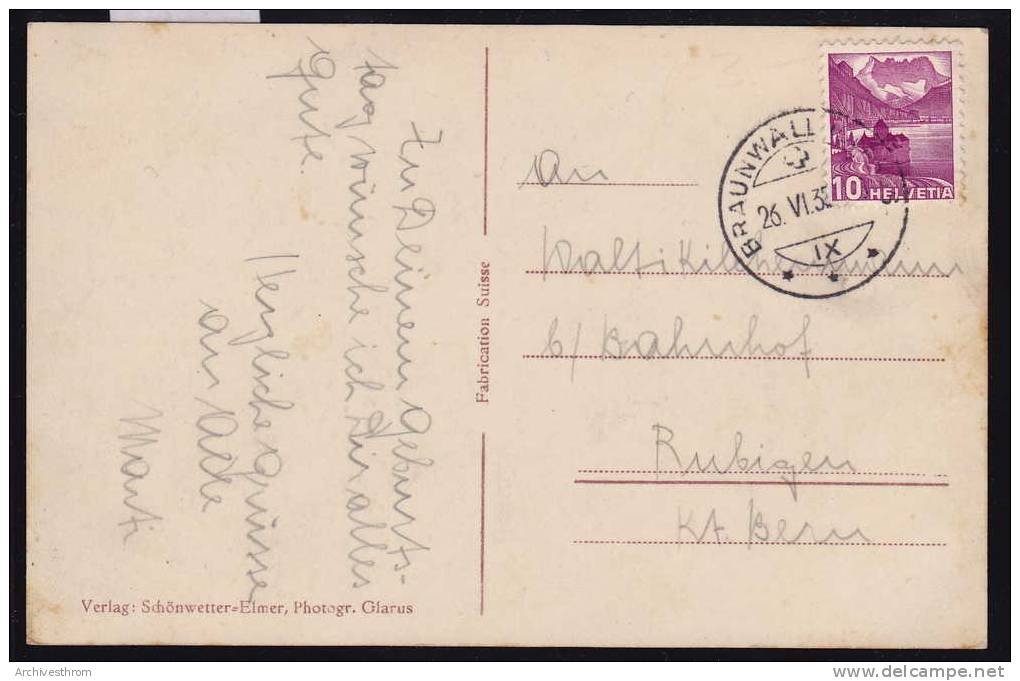 Zu Deinem Geburts-
tag wünsche ich Dir alles
Gute.
Herzliche Grüsse
an Alle
Marti
Fabrication Suisse
Verlag: Schönwetter=Elmer, Photogr. Glarus
BRAUNWALL
26. VI. 35
IX
10 HELVETIA
An
Walti
b/ Bahnhof
Rubigen
Kt. Bern
Archivesthrom
www.delcampe.net